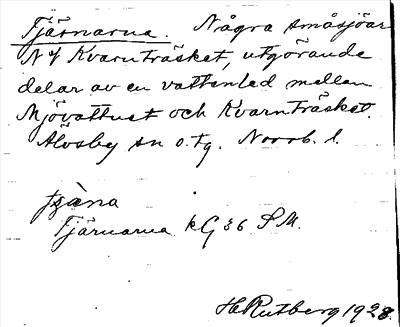 Tjärnarna. Några småsjöar
N of Kvarnträsket, utgörande
delar av en vattenled mellan
Mjövattnet och Kvarnträsket.
Älvsby sn o. tg. Norrb. l.
Tjärnarna kG 36 S.M.
H Rutberg 1928.